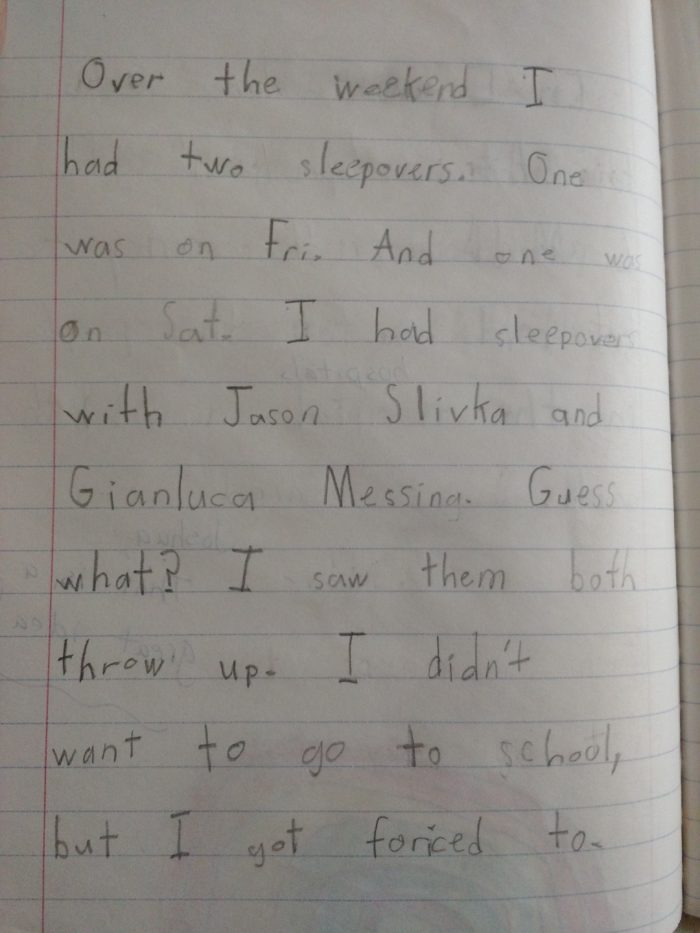 Over the weekend I
had two sleepovers. One
was on Fri. And one was
on Sat. I had sleepovers
with Jason Slivka and
Gianluca Messing. Guess
what? I saw them both
throw up. I didn't
want to go to school,
but I got foriced to.